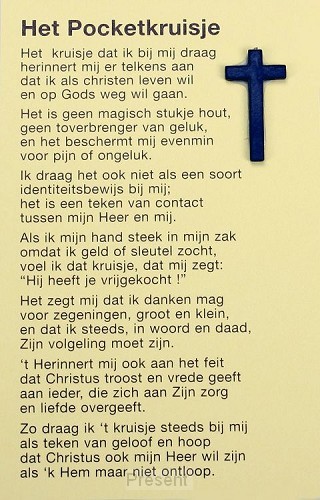 Het Pocketkruisje
Het kruisje dat ik bij mij draag
herinnert mij er telkens aan
dat ik als christen leven wil
en op Gods weg wil gaan.
Het is geen magisch stukje hout,
geen toverbrenger van geluk,
en het beschermt mij evenmin
voor pijn of ongeluk.
Ik draag het ook niet als een soort
identiteitsbewijs bij mij;
het is een teken van contact
tussen mijn Heer en mij.
Als ik mijn hand steek in mijn zak
omdat ik geld of sleutel zocht,
voel ik dat kruisje, dat mij zegt:
“Hij heeft je vrijgekocht !”
Het zegt mij dat ik danken mag
voor zegeningen, groot en klein,
en dat ik steeds, in woord en daad,
Zijn volgeling moet zijn.
‘t Herinnert mij ook aan het feit
dat Christus troost en vrede geeft
aan ieder, die zich aan Zijn zorg
en liefde overgeeft.
Zo draag ik ‘t kruisje steeds bij mij
als teken van geloof en hoop
dat Christus ook mijn Heer wil zijn
als ‘k Hem maar niet ontloop.
Present